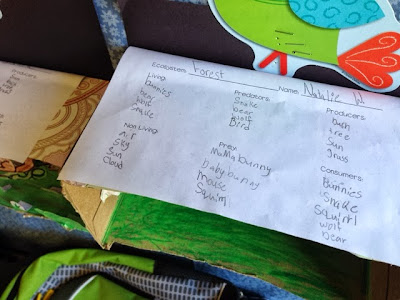 Ecosystem: Forest Name: Natalie W
Living:
Bunnies
bear
Wolf
Snake
Non Living:
Air
Sky
Sun
Cloud
Predators:
Snake
bear
Wolf
Bird
Prey:
MaMa bunny
baby bunny
mouse
Squirrl
Producers:
tree
Sun
Grass
Consumers:
Bunnies
Snake
Squirrl
wolf
bear
Producers: